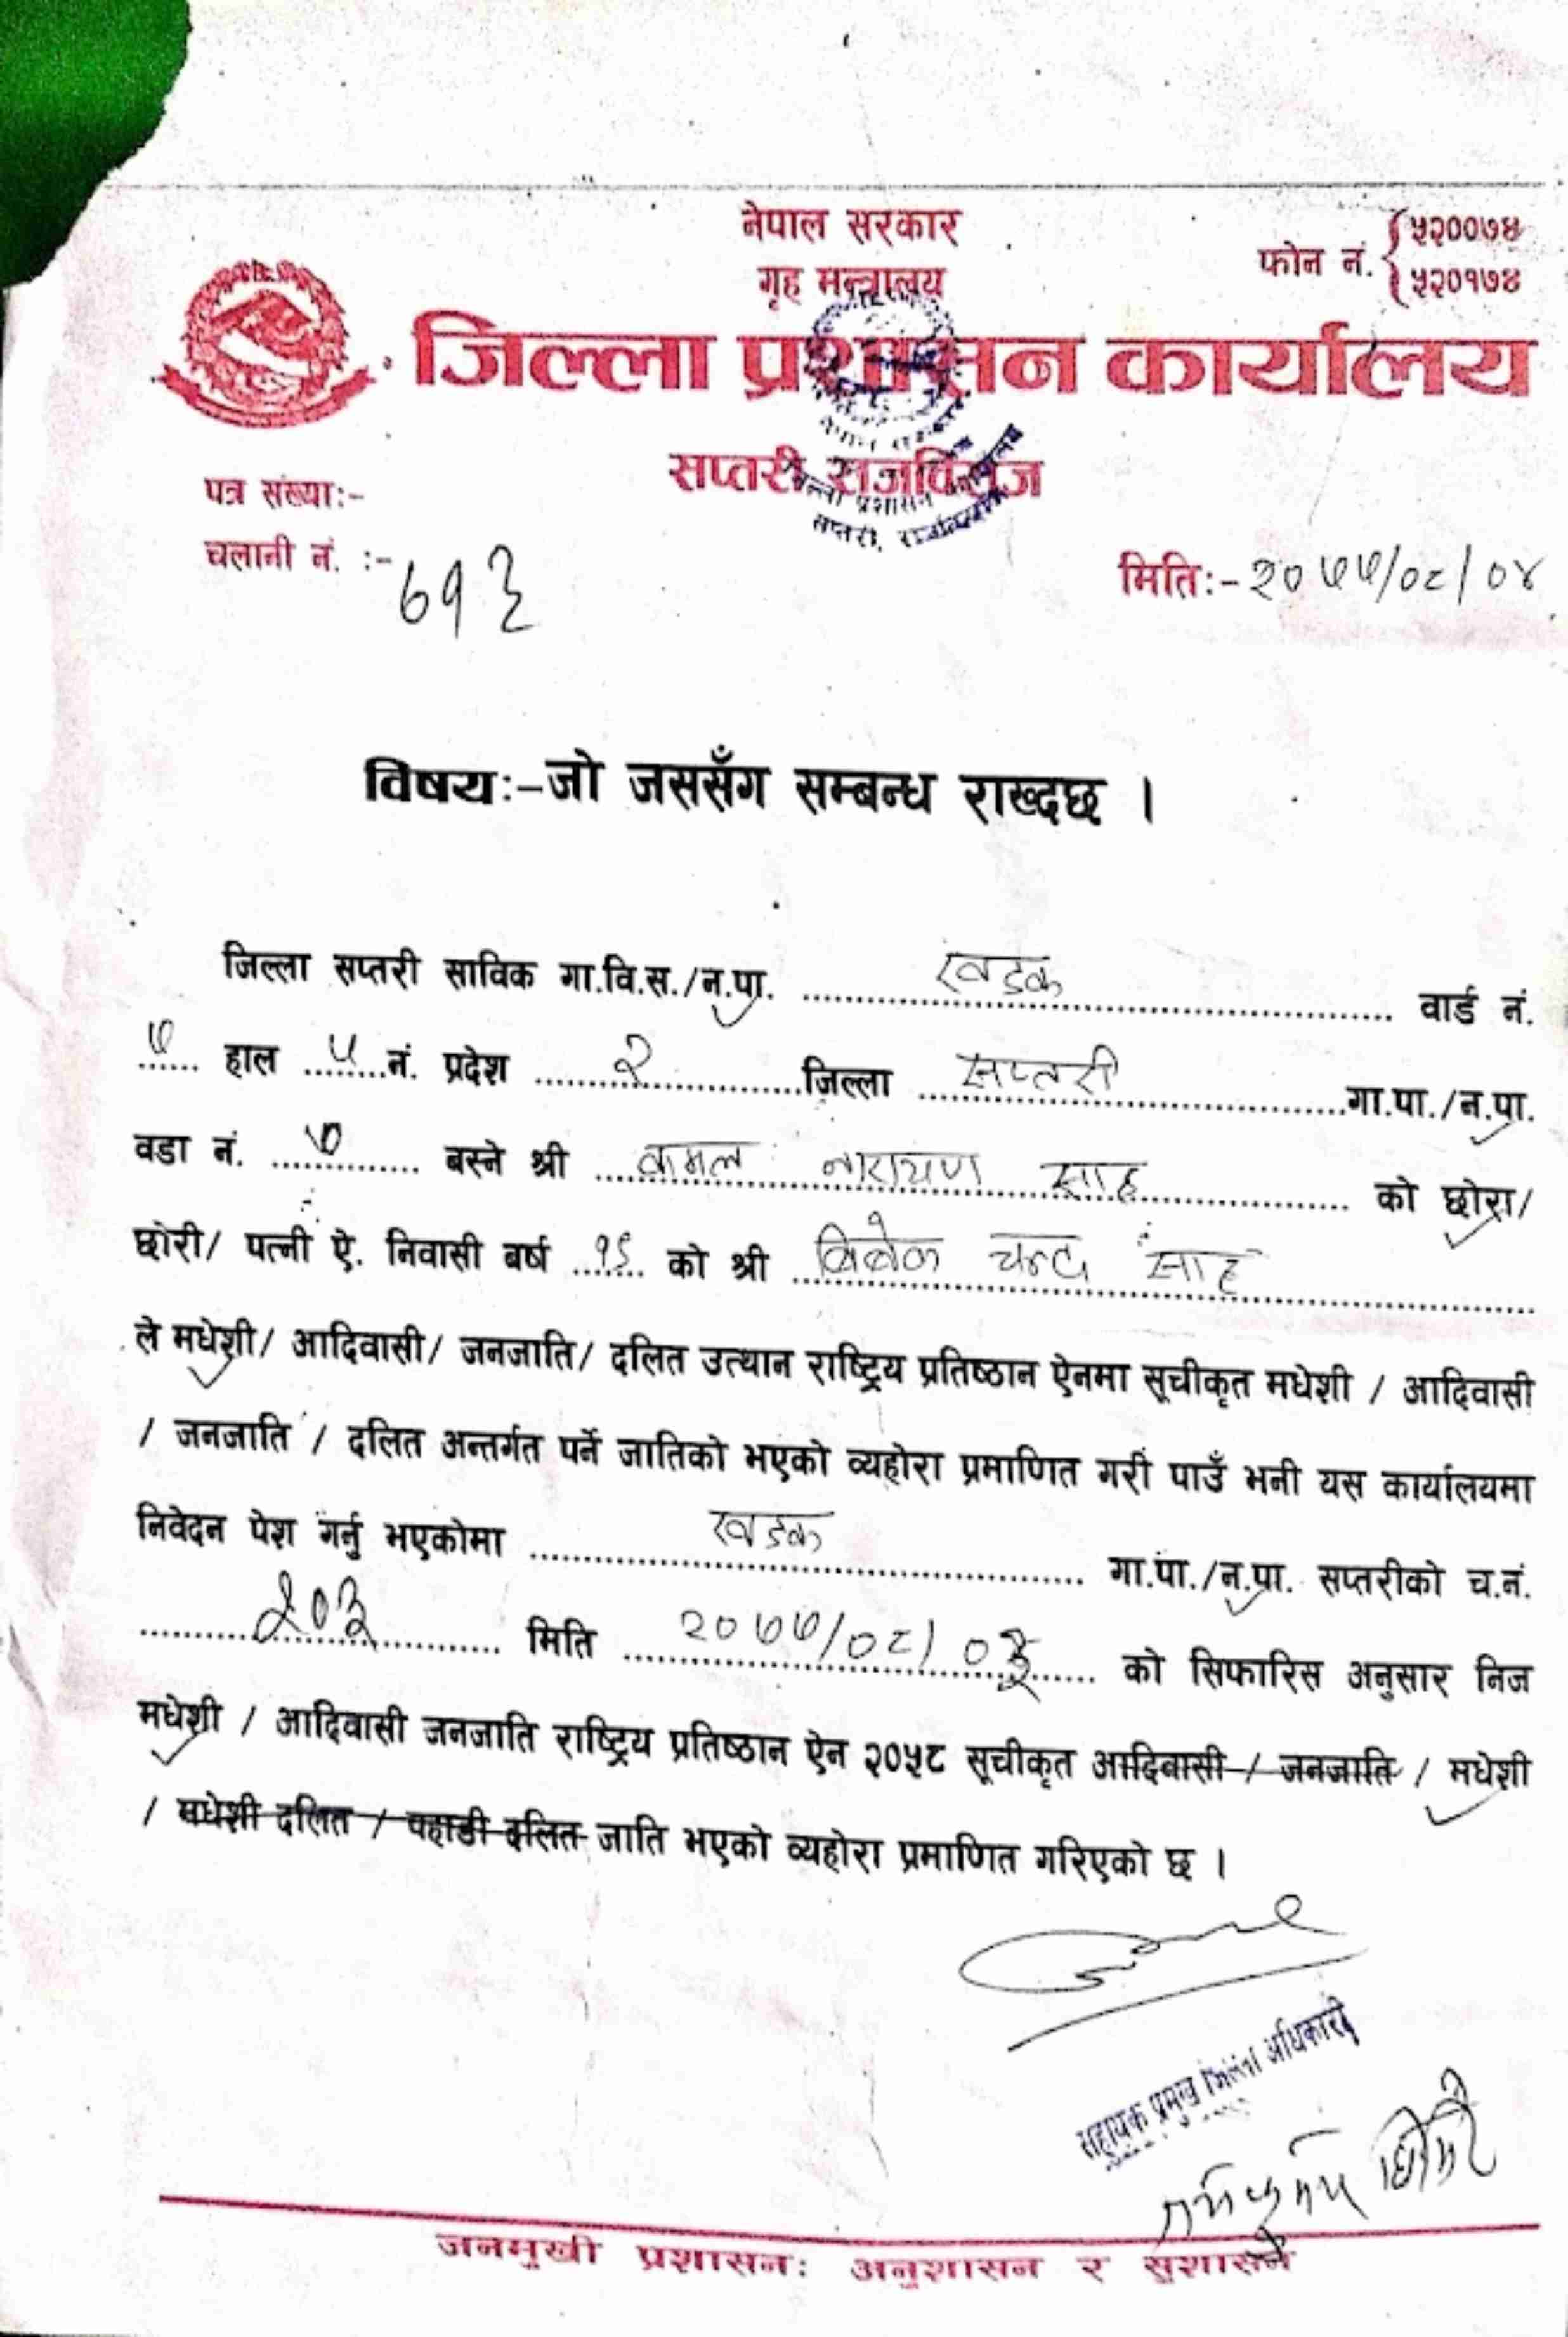 नेपाल सरकार
गृह मन्त्रालय
फोन नं. ५२००७४
५२०१७४
जिल्ला प्रशासन कार्यालय
सप्तरी राजविराज
पत्र संख्याः-
चलानी नं. :- ७१३
मितिः- २०७७/०८/०४
विषयः-जो जससँग सम्बन्ध राख्दछ ।
जिल्ला सप्तरी साविक गा.वि.स./न.पा. खडक वार्ड नं.
७ हाल ५ नं. प्रदेश २ जिल्ला सप्तरी गा.पा./न.पा.
वडा नं. ७ बस्ने श्री कमल नारायण साह को छोरा/
छोरी/ पत्नी ऐ. निवासी बर्ष १९ को श्री बिबेक चन्द्र साह
ले मधेशी/ आदिवासी/ जनजाति/ दलित उत्थान राष्ट्रिय प्रतिष्ठान ऐनमा सूचीकृत मधेशी / आदिवासी
/ जनजाति / दलित अन्तर्गत पर्ने जातिको भएको व्यहोरा प्रमाणित गरी पाउँ भनी यस कार्यालयमा
निवेदन पेश गर्नु भएकोमा खडक गा.पा./न.पा. सप्तरीको च.नं.
२०३ मिति २०७७/०८/०३ को सिफारिस अनुसार निज
मधेशी / आदिवासी जनजाति राष्ट्रिय प्रतिष्ठान ऐन २०५८ सूचीकृत आदिवासी / जनजाति / मधेशी
/ मधेशी दलित / पहाडी दलित जाति भएको व्यहोरा प्रमाणित गरिएको छ ।
सहायक प्रमुख जिल्ला अधिकारी
जनमुखी प्रशासनः अनुशासन र सुशासन